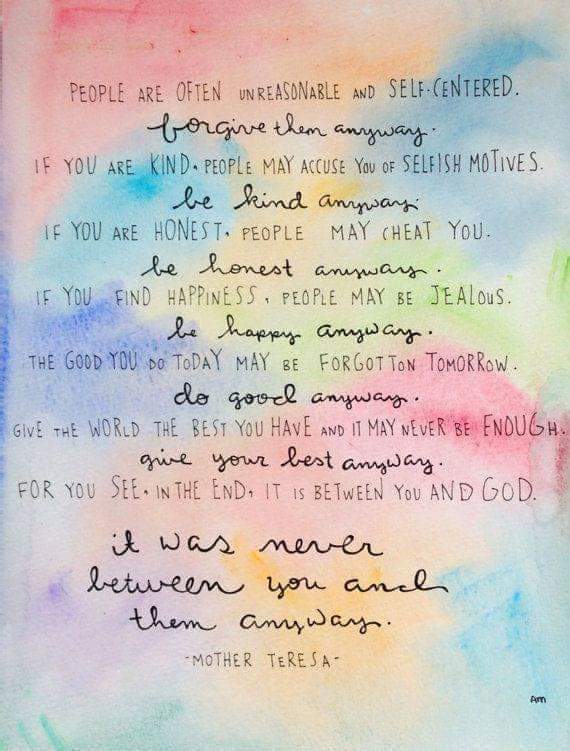 PEOPLE ARE OFTEN UNREASONABLE AND SELF-CENTERED.
forgive them anyway.
IF YOU ARE KIND, PEOPLE MAY ACCUSE YOU OF SELFISH MOTIVES.
be kind anyway.
IF YOU ARE HONEST, PEOPLE MAY CHEAT YOU.
be honest anyway.
IF YOU FIND HAPPINESS, PEOPLE MAY BE JEALOUS.
be happy anyway.
THE GOOD YOU DO TODAY MAY BE FORGOTTON TOMORROW.
do good anyway.
GIVE THE WORLD THE BEST YOU HAVE AND IT MAY NEVER BE ENOUGH.
give your best anyway.
FOR YOU SEE, IN THE END, IT IS BETWEEN YOU AND GOD.
it was never
between you and
them anyway.
-MOTHER TERESA-
Am